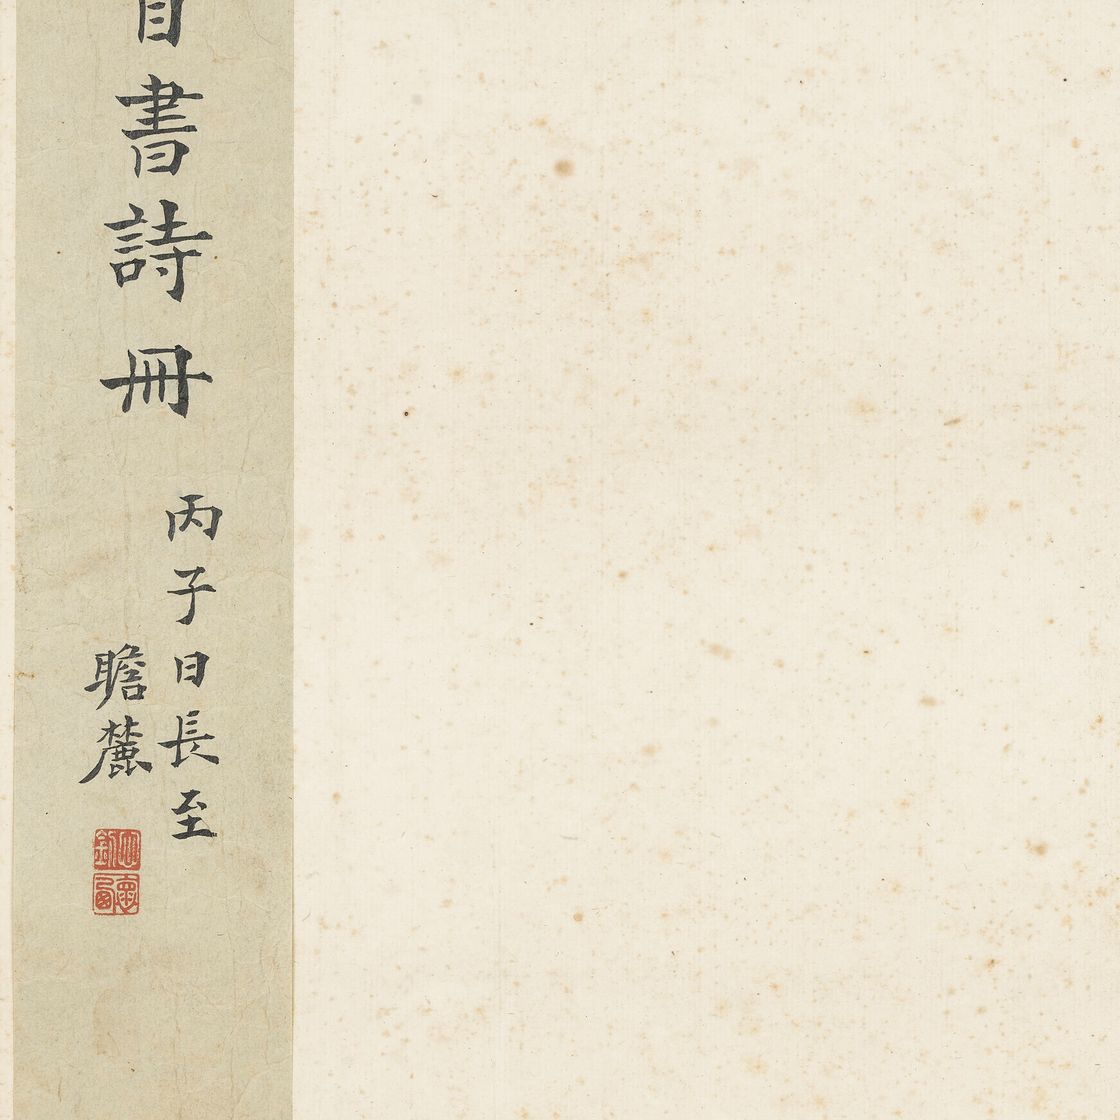 自書詩冊
丙子日長至
瞻麓